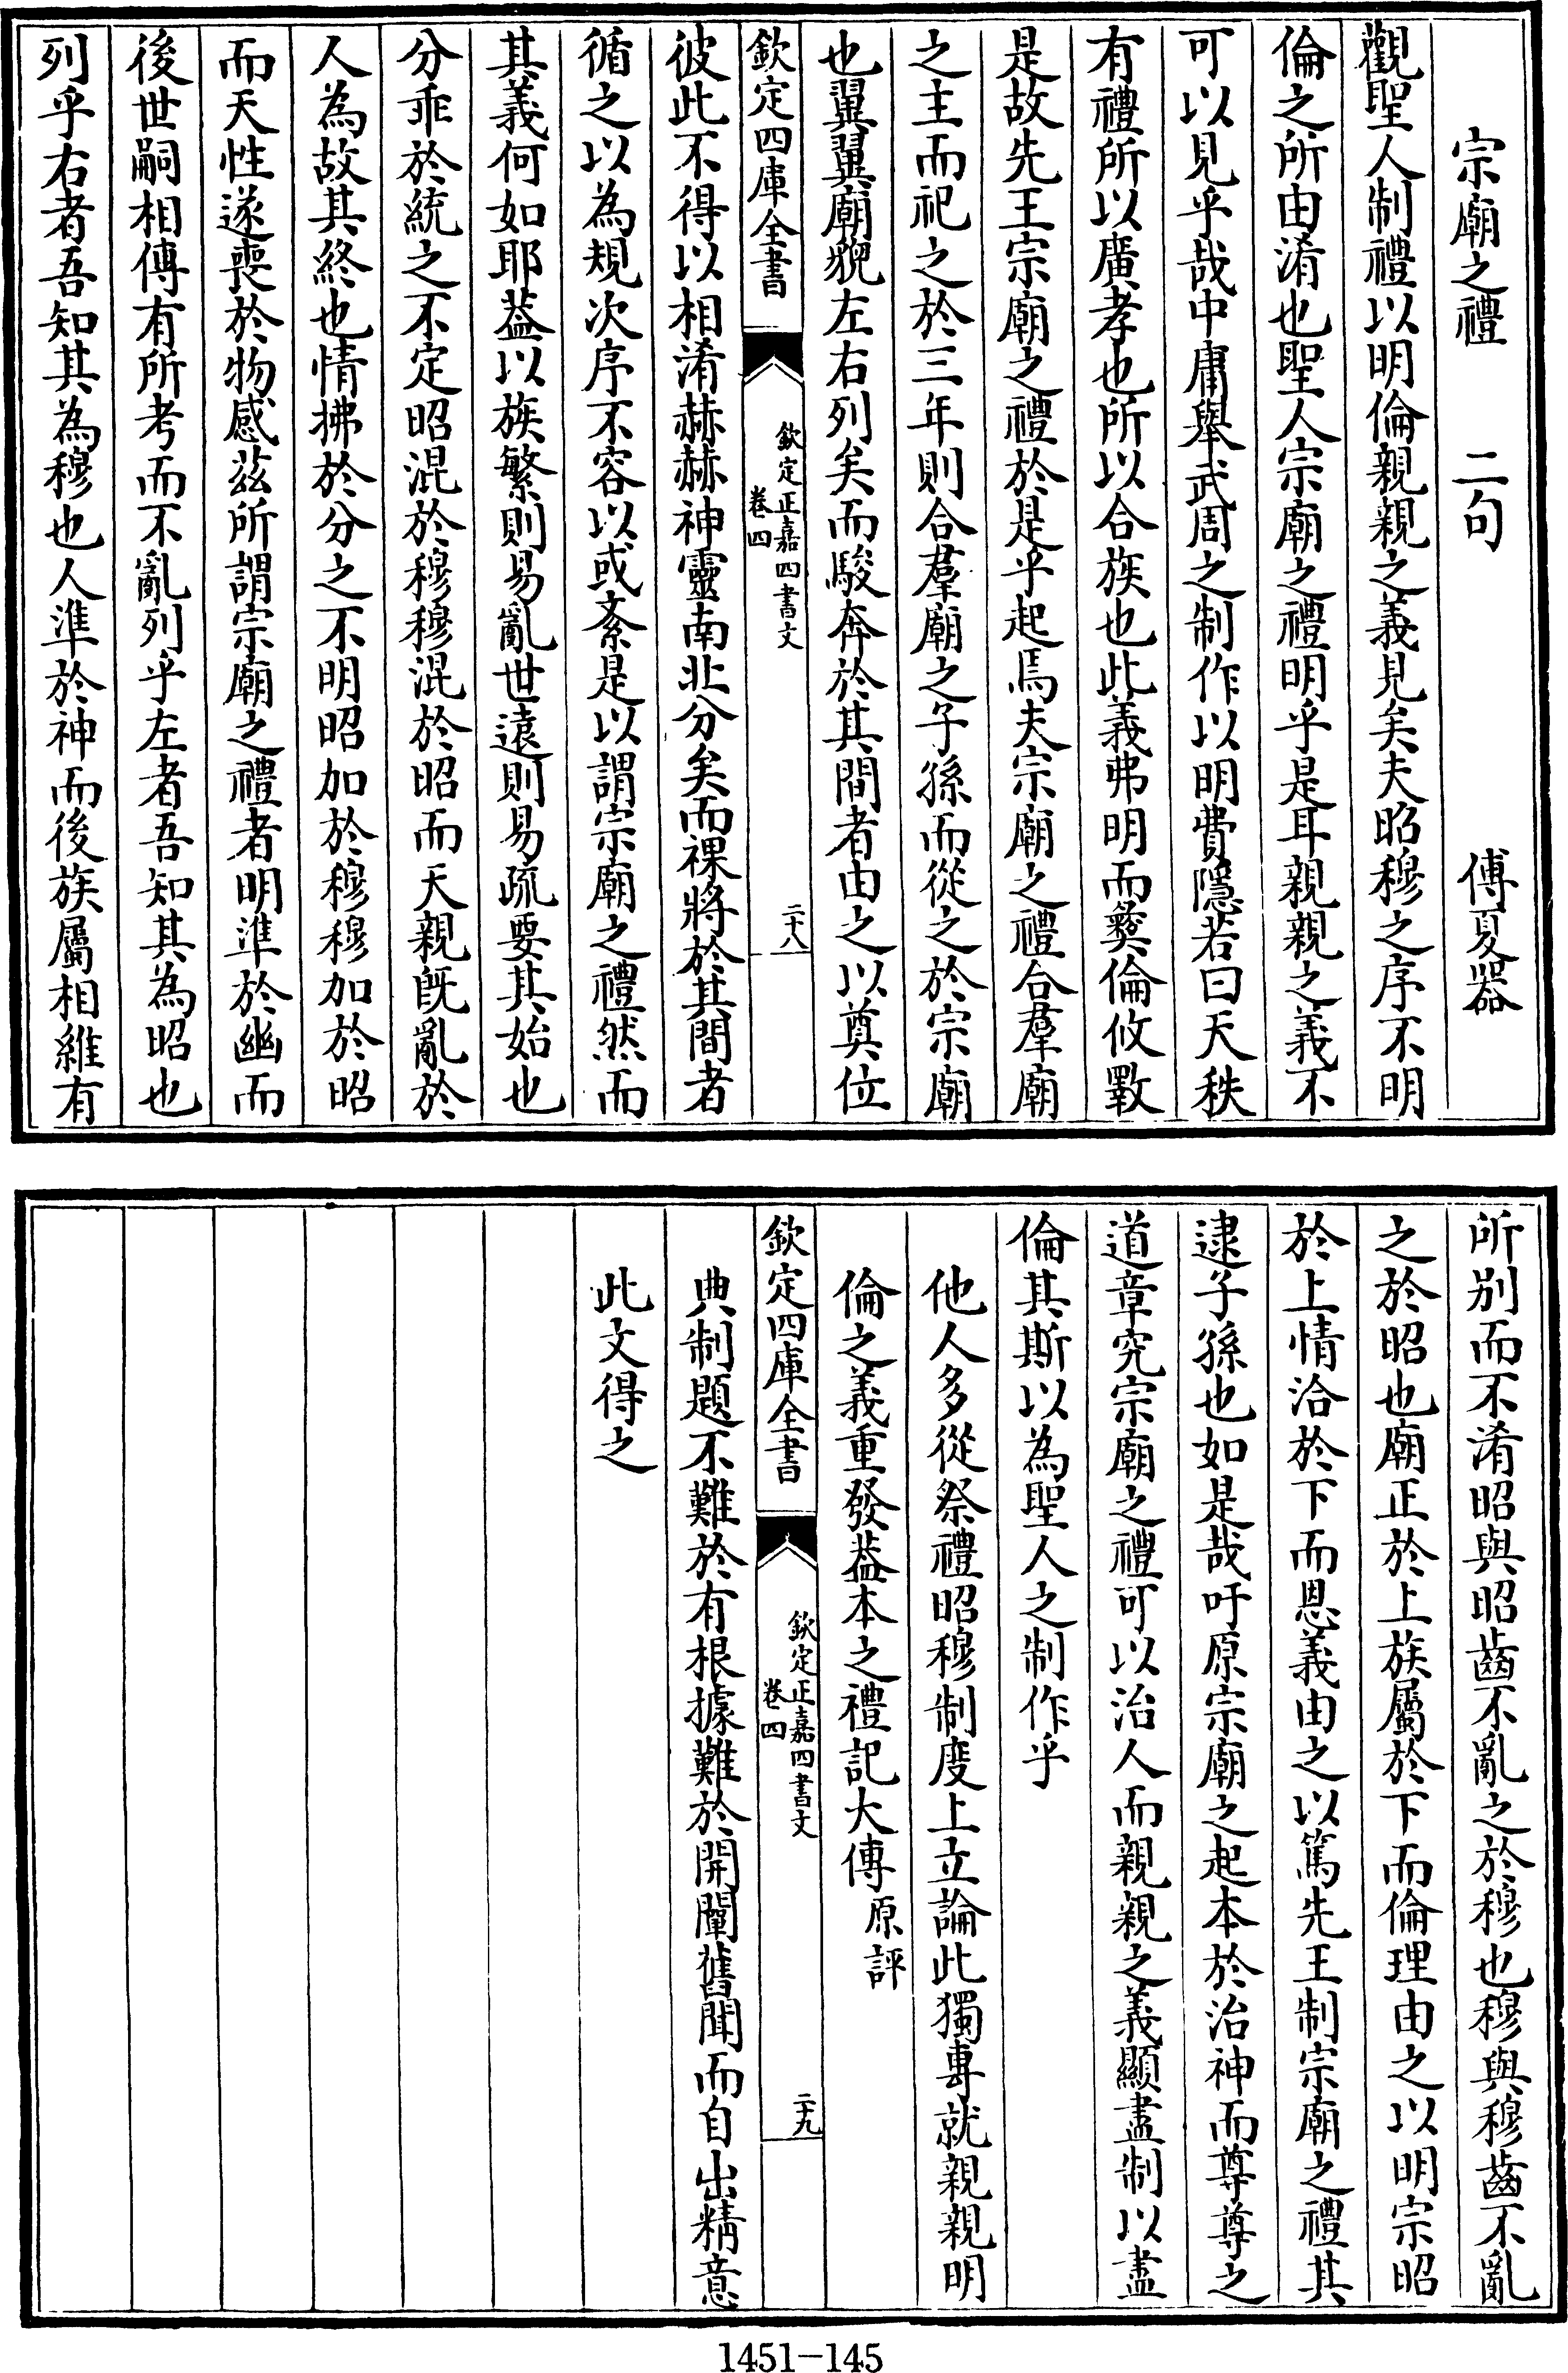 宗廟之禮　二句　傅夏器
觀聖人制禮以明倫親親之義見矣夫昭穆之序不明
倫之所由淆也聖人宗廟之禮明乎是耳親親之義不
可以見乎哉中庸舉武周之制作以明費隱若曰天秩
有禮所以廣孝也所以合族也此義弗明而彛倫攸斁
是故先王宗廟之禮於是乎起焉夫宗廟之禮合羣廟
之主而祀之於三年則合羣廟之子孫而從之於宗廟
也翼翼廟貌左右列矣而駿奔於其間者由之以奠位
欽定四庫全書
欽定正嘉四書文
卷四
二十八
彼此不得以相淆赫赫神靈南北分矣而祼將於其間者
循之以為規次序不容以或紊是以謂宗廟之禮然而
其義何如耶葢以族繁則易亂世遠則易疏要其始也
分乖於統之不定昭混於穆穆混於昭而天親旣亂於
人為故其終也情拂於分之不明昭加於穆穆加於昭
而天性遂喪於物感茲所謂宗廟之禮者明準於幽而
後世嗣相傳有所考而不亂列乎左者吾知其為昭也
列乎右者吾知其為穆也人準於神而後族屬相維有
所別而不淆昭與昭齒不亂之於穆也穆與穆齒不亂
之於昭也廟正於上族屬於下而倫理由之以明宗昭
於上情洽於下而恩義由之以篤先王制宗廟之禮其
逮子孫也如是哉吁原宗廟之起本於治神而尊尊之
道章究宗廟之禮可以治人而親親之義顯盡制以盡
倫其斯以為聖人之制作乎
他人多從祭禮昭穆制度上立論此獨專就親親明
倫之義重發葢本之禮記大傳原評
欽定四庫全書
欽定正嘉四書文
卷四
二十九
典制題不難於有根據難於開闡舊聞而自出精意
此文得之
1451-145